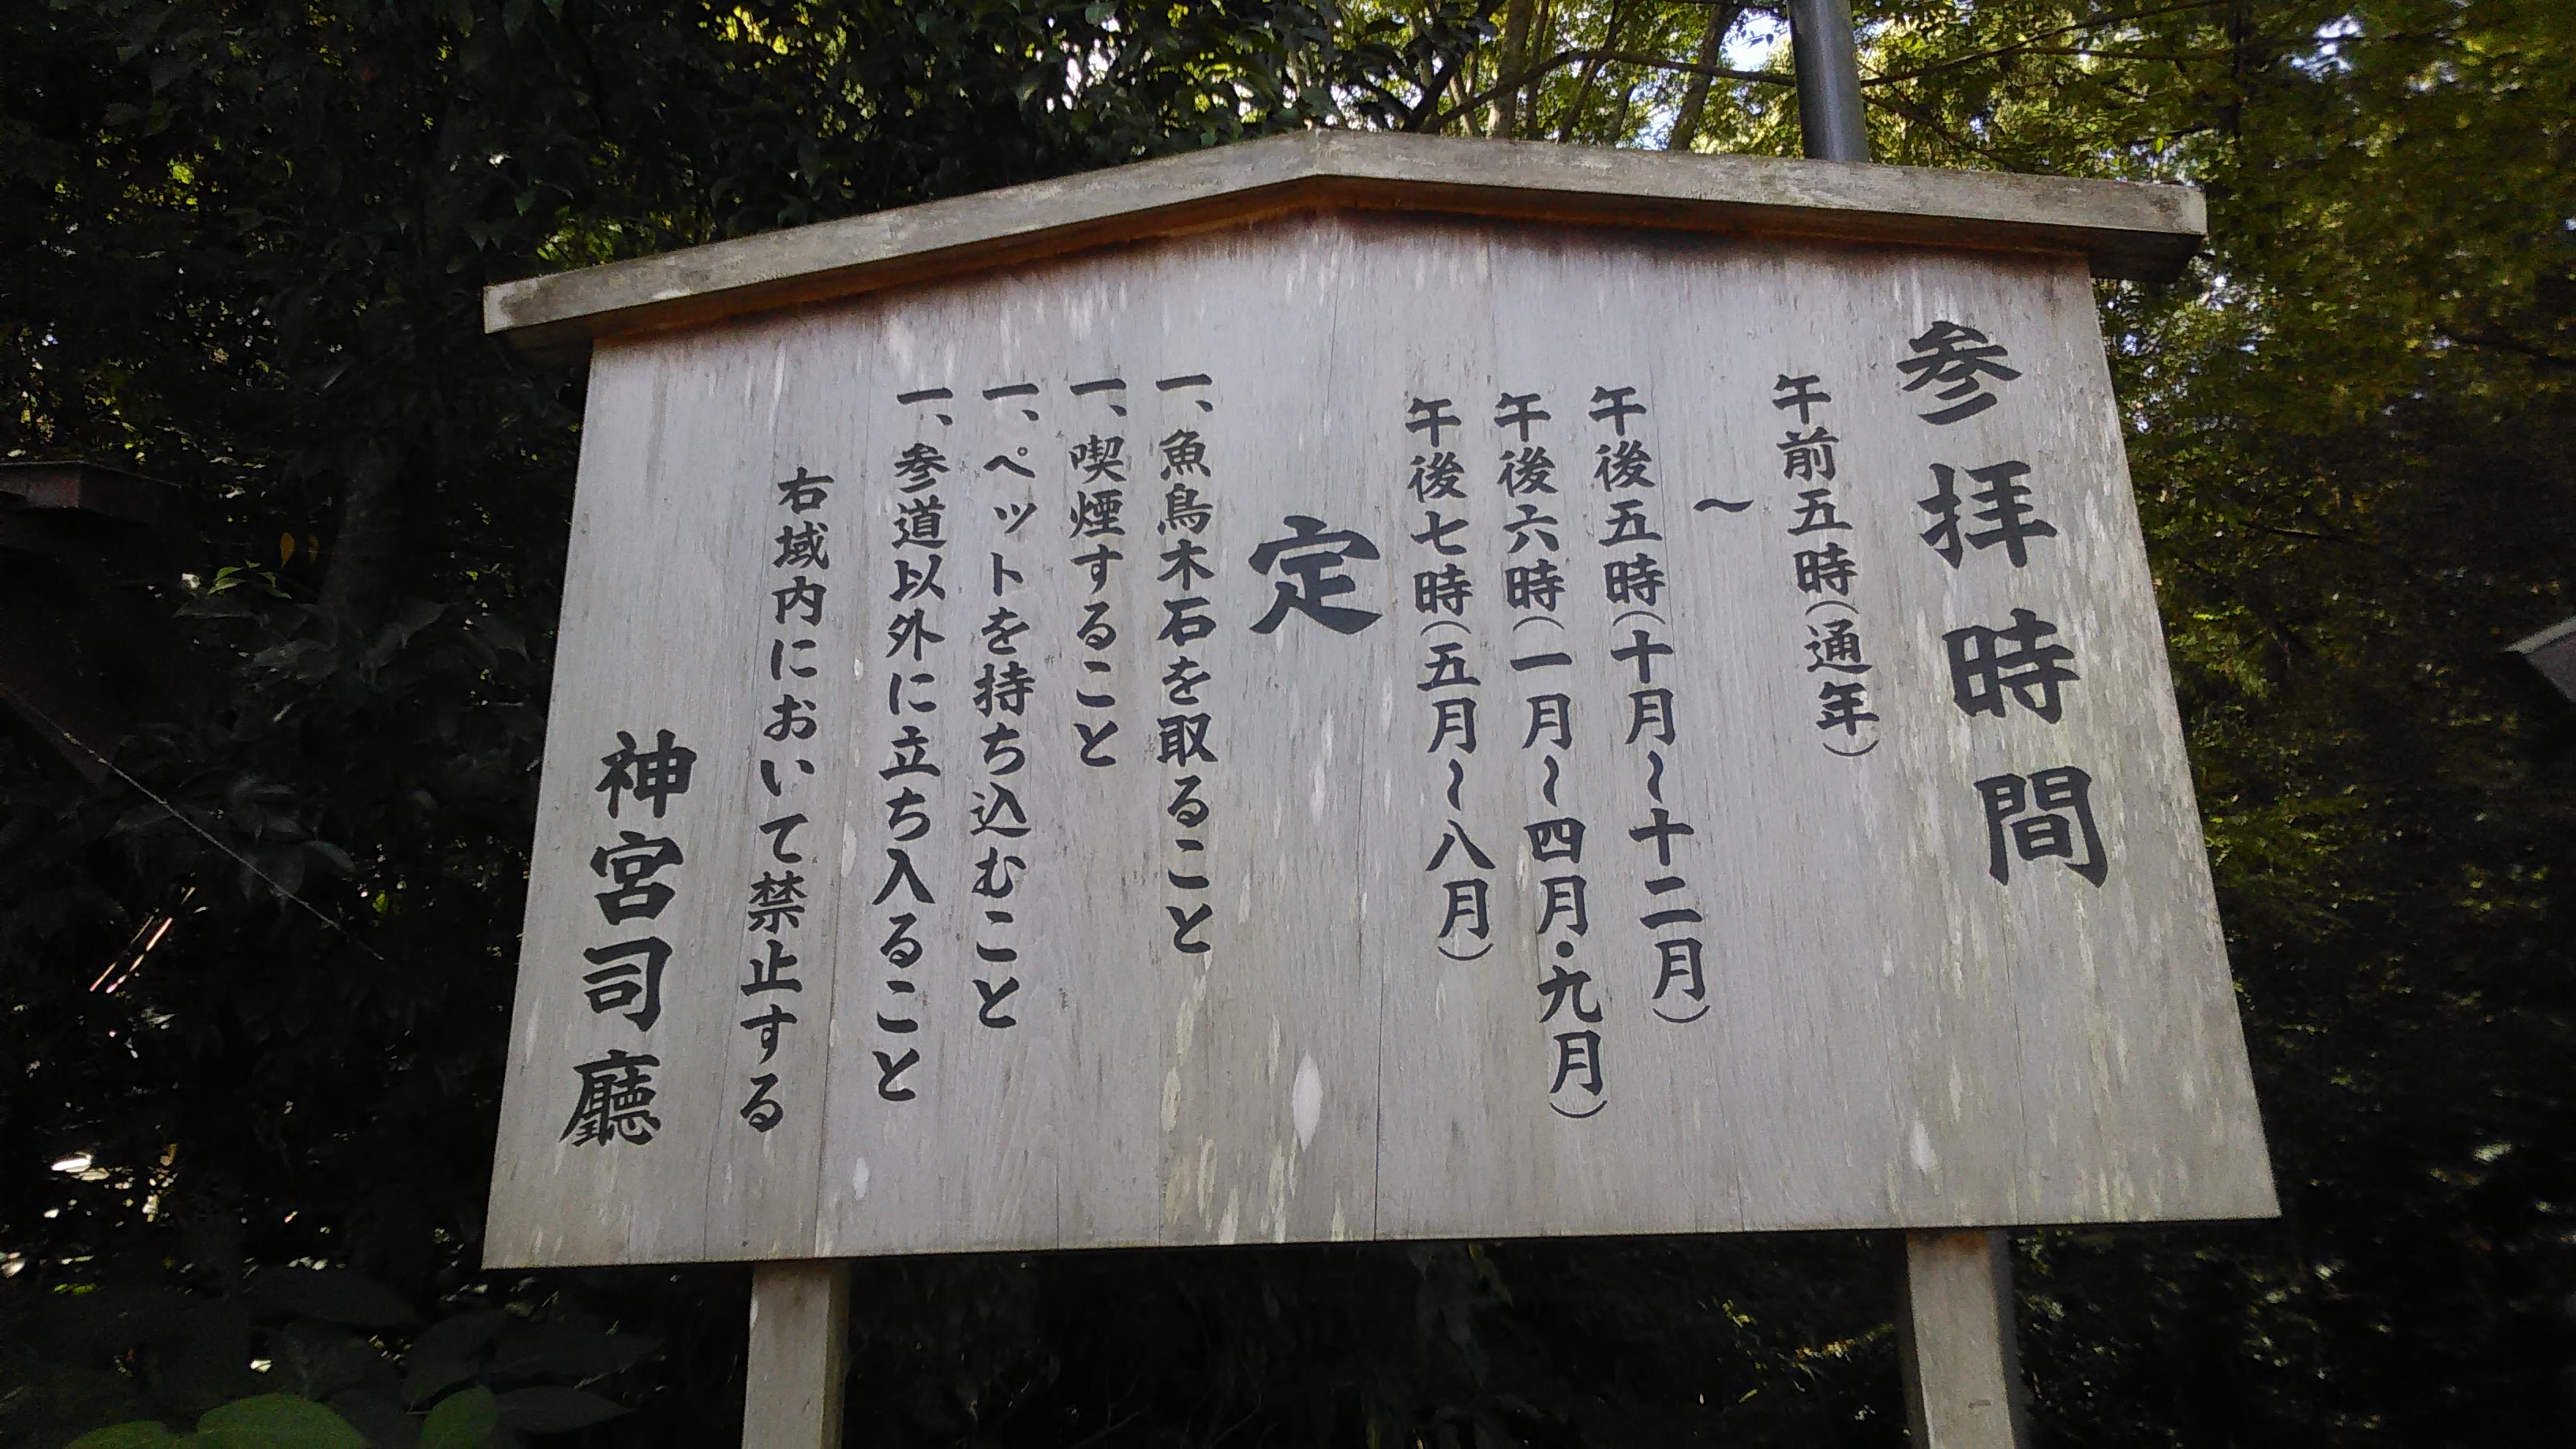 参拝時間
午前五時（通年）
〜
午後五時（十月〜十二月）
午後六時（一月〜四月・九月）
午後七時（五月〜八月）
定
一、魚鳥木石を取ること
一、喫煙すること
一、ペットを持ち込むこと
一、参道以外に立ち入ること
右域内において禁止する
神宮司廳